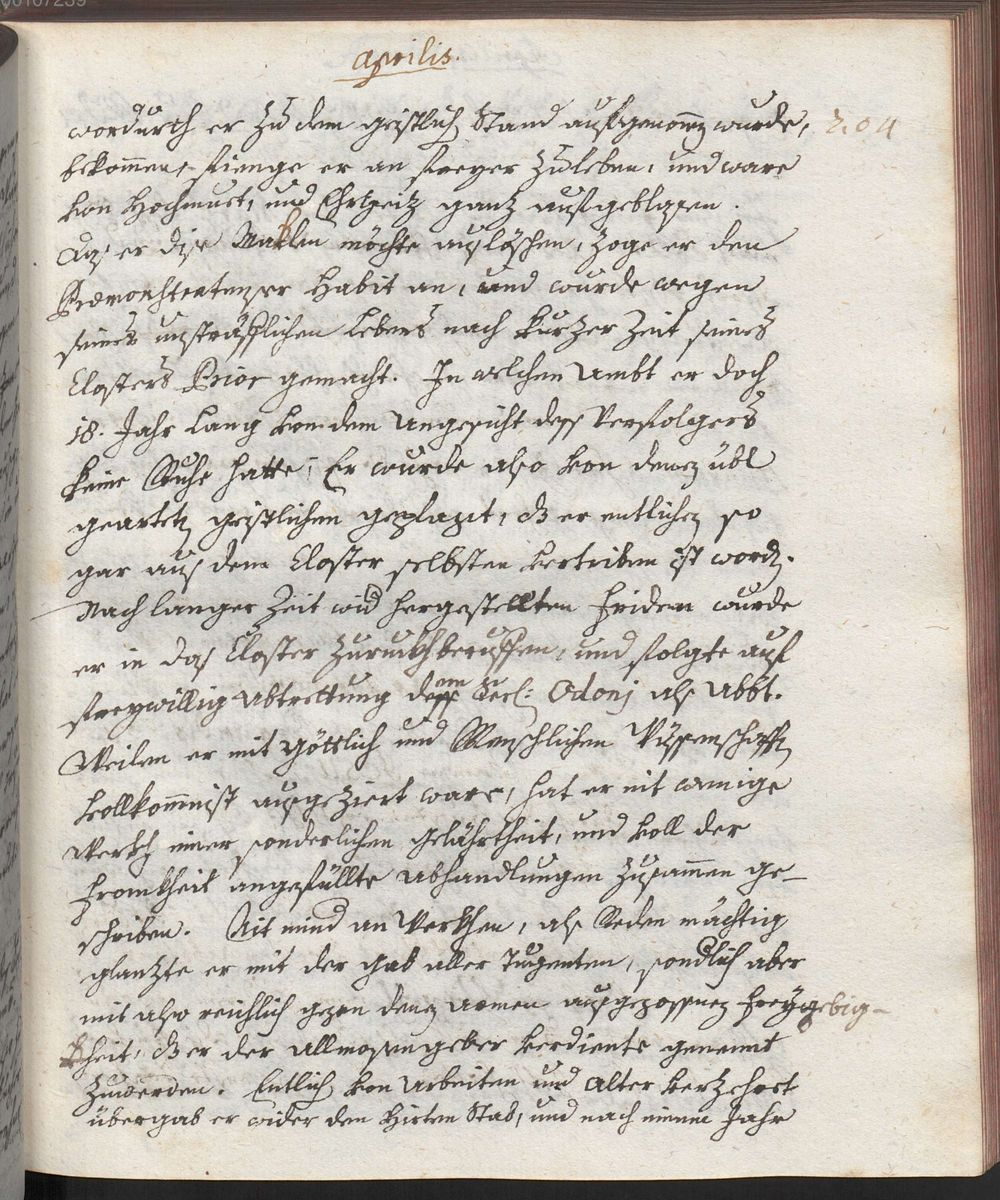 00107239
Aprilis.
wordurch er zu dem geistlich Stand aufgenomen wurde, 204
bekommen, fienge er an freyer zu leben, und ware
von Hochmuet, und Ehrgeitz ganz aufgeblasen.
Das er dise Maklen möchte auslöschen, zoge er den
Præmonstratenser Habit an, und wurde wegen
seines unsträfflichen Lebens nach kurzer Zeit seines
Closters Prior gemacht. In welchen Ambt er doch
18. Jahr lang von dem Angesicht dess Verfolgers
keine Ruhe hatte; Er wurde also von denen übl
gearteten geistlichen geplagt, dz er entlichen so
gar aus dem Closter selbsten vertriben ist worden.
Nach langer Zeit wid hergestellten Friden wurde
er in das Closter zuruckhberuffen, und folgte auf
freywillig Abtrettung dess Seel: Odonj als Abbt.
Weilen er mit göttlich und Menschlichen Wissenschafften
vollkomnist ausgeziert ware, hat er nit wenige
Werkh einer sonderlichen gelährtheit, und voll der
Fromkheit angefüllte Abhandlungen zusammen ge-
schriben. Nit mind an Werkhen, als Reden mächtig
glanzte er mit der gab aller Tugenten, sondlich aber
mit also reichlich gegen denen Armen ausgegossnen Freygebig-
kheit, dz er der Allmosengeber verdiente genennt
zuwerden. Entlich von Arbeiten und Alter verzehrt
übergab er wider den Hirten Stab, und nach einem Jahr